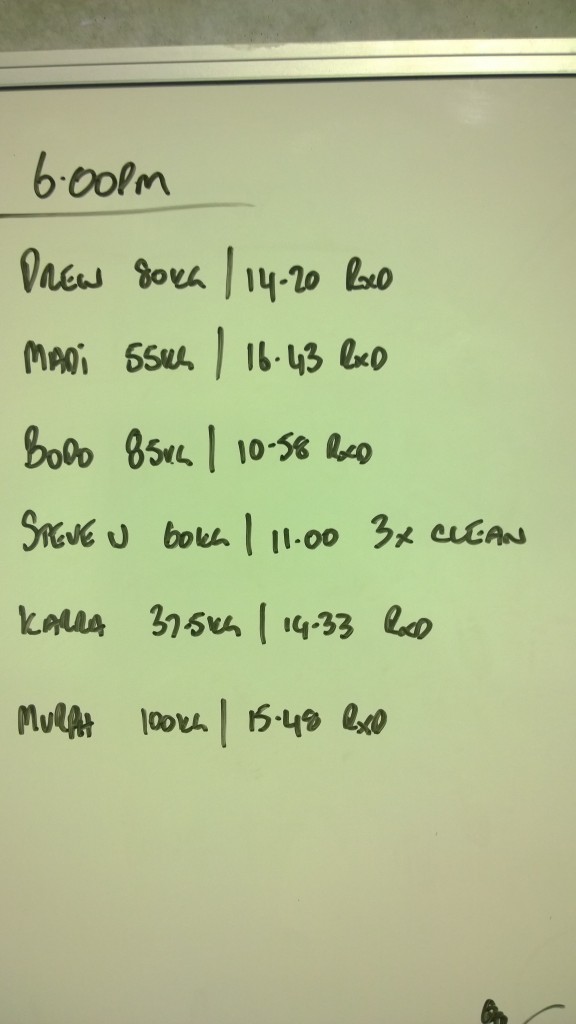 6.00PM
DREW 80KG | 14-20 RXD
MADi 55KG | 16.43 RXD
BODO 85KG | 10-58 RXD
STEVE U 60KG | 11.00 3x CLEAN
KARRA 37.5KG | 14-33 RXD
MURAT 100KG | 15.48 RXD